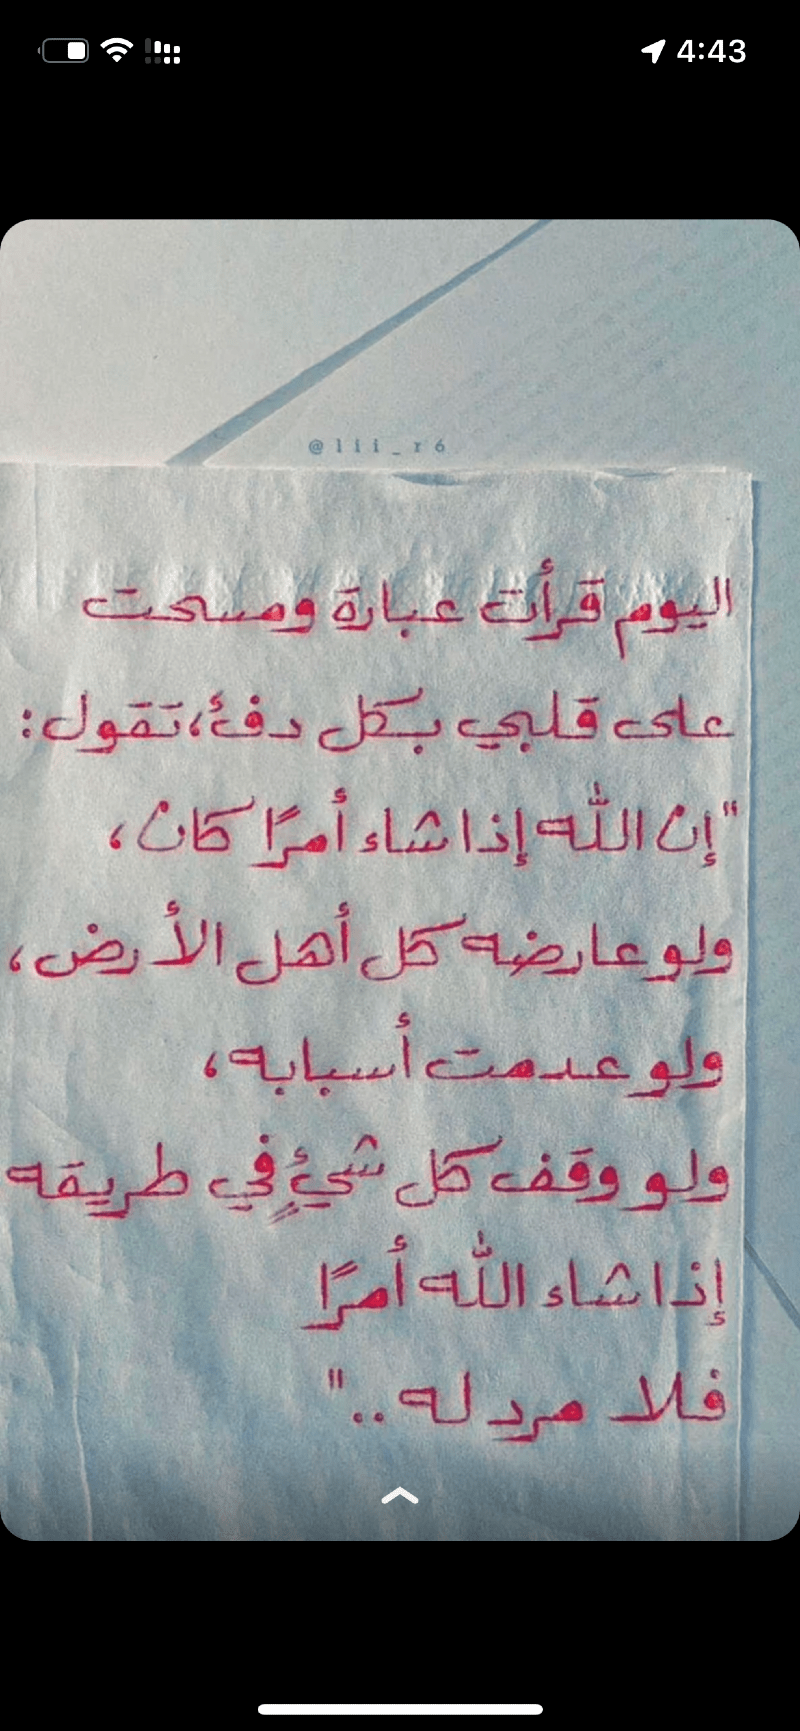 4:43
@lii_r6
اليوم قرأت عبارة ومسحت
على قلبي بكل دفئ، تقول:
"إن الله إذا شاء أمرًا كان،
ولو عارضه كل أهل الأرض،
ولو عدمت أسبابه،
ولو وقف كل شيءٍ في طريقه
إذا شاء الله أمرًا
فلا مرد له .."